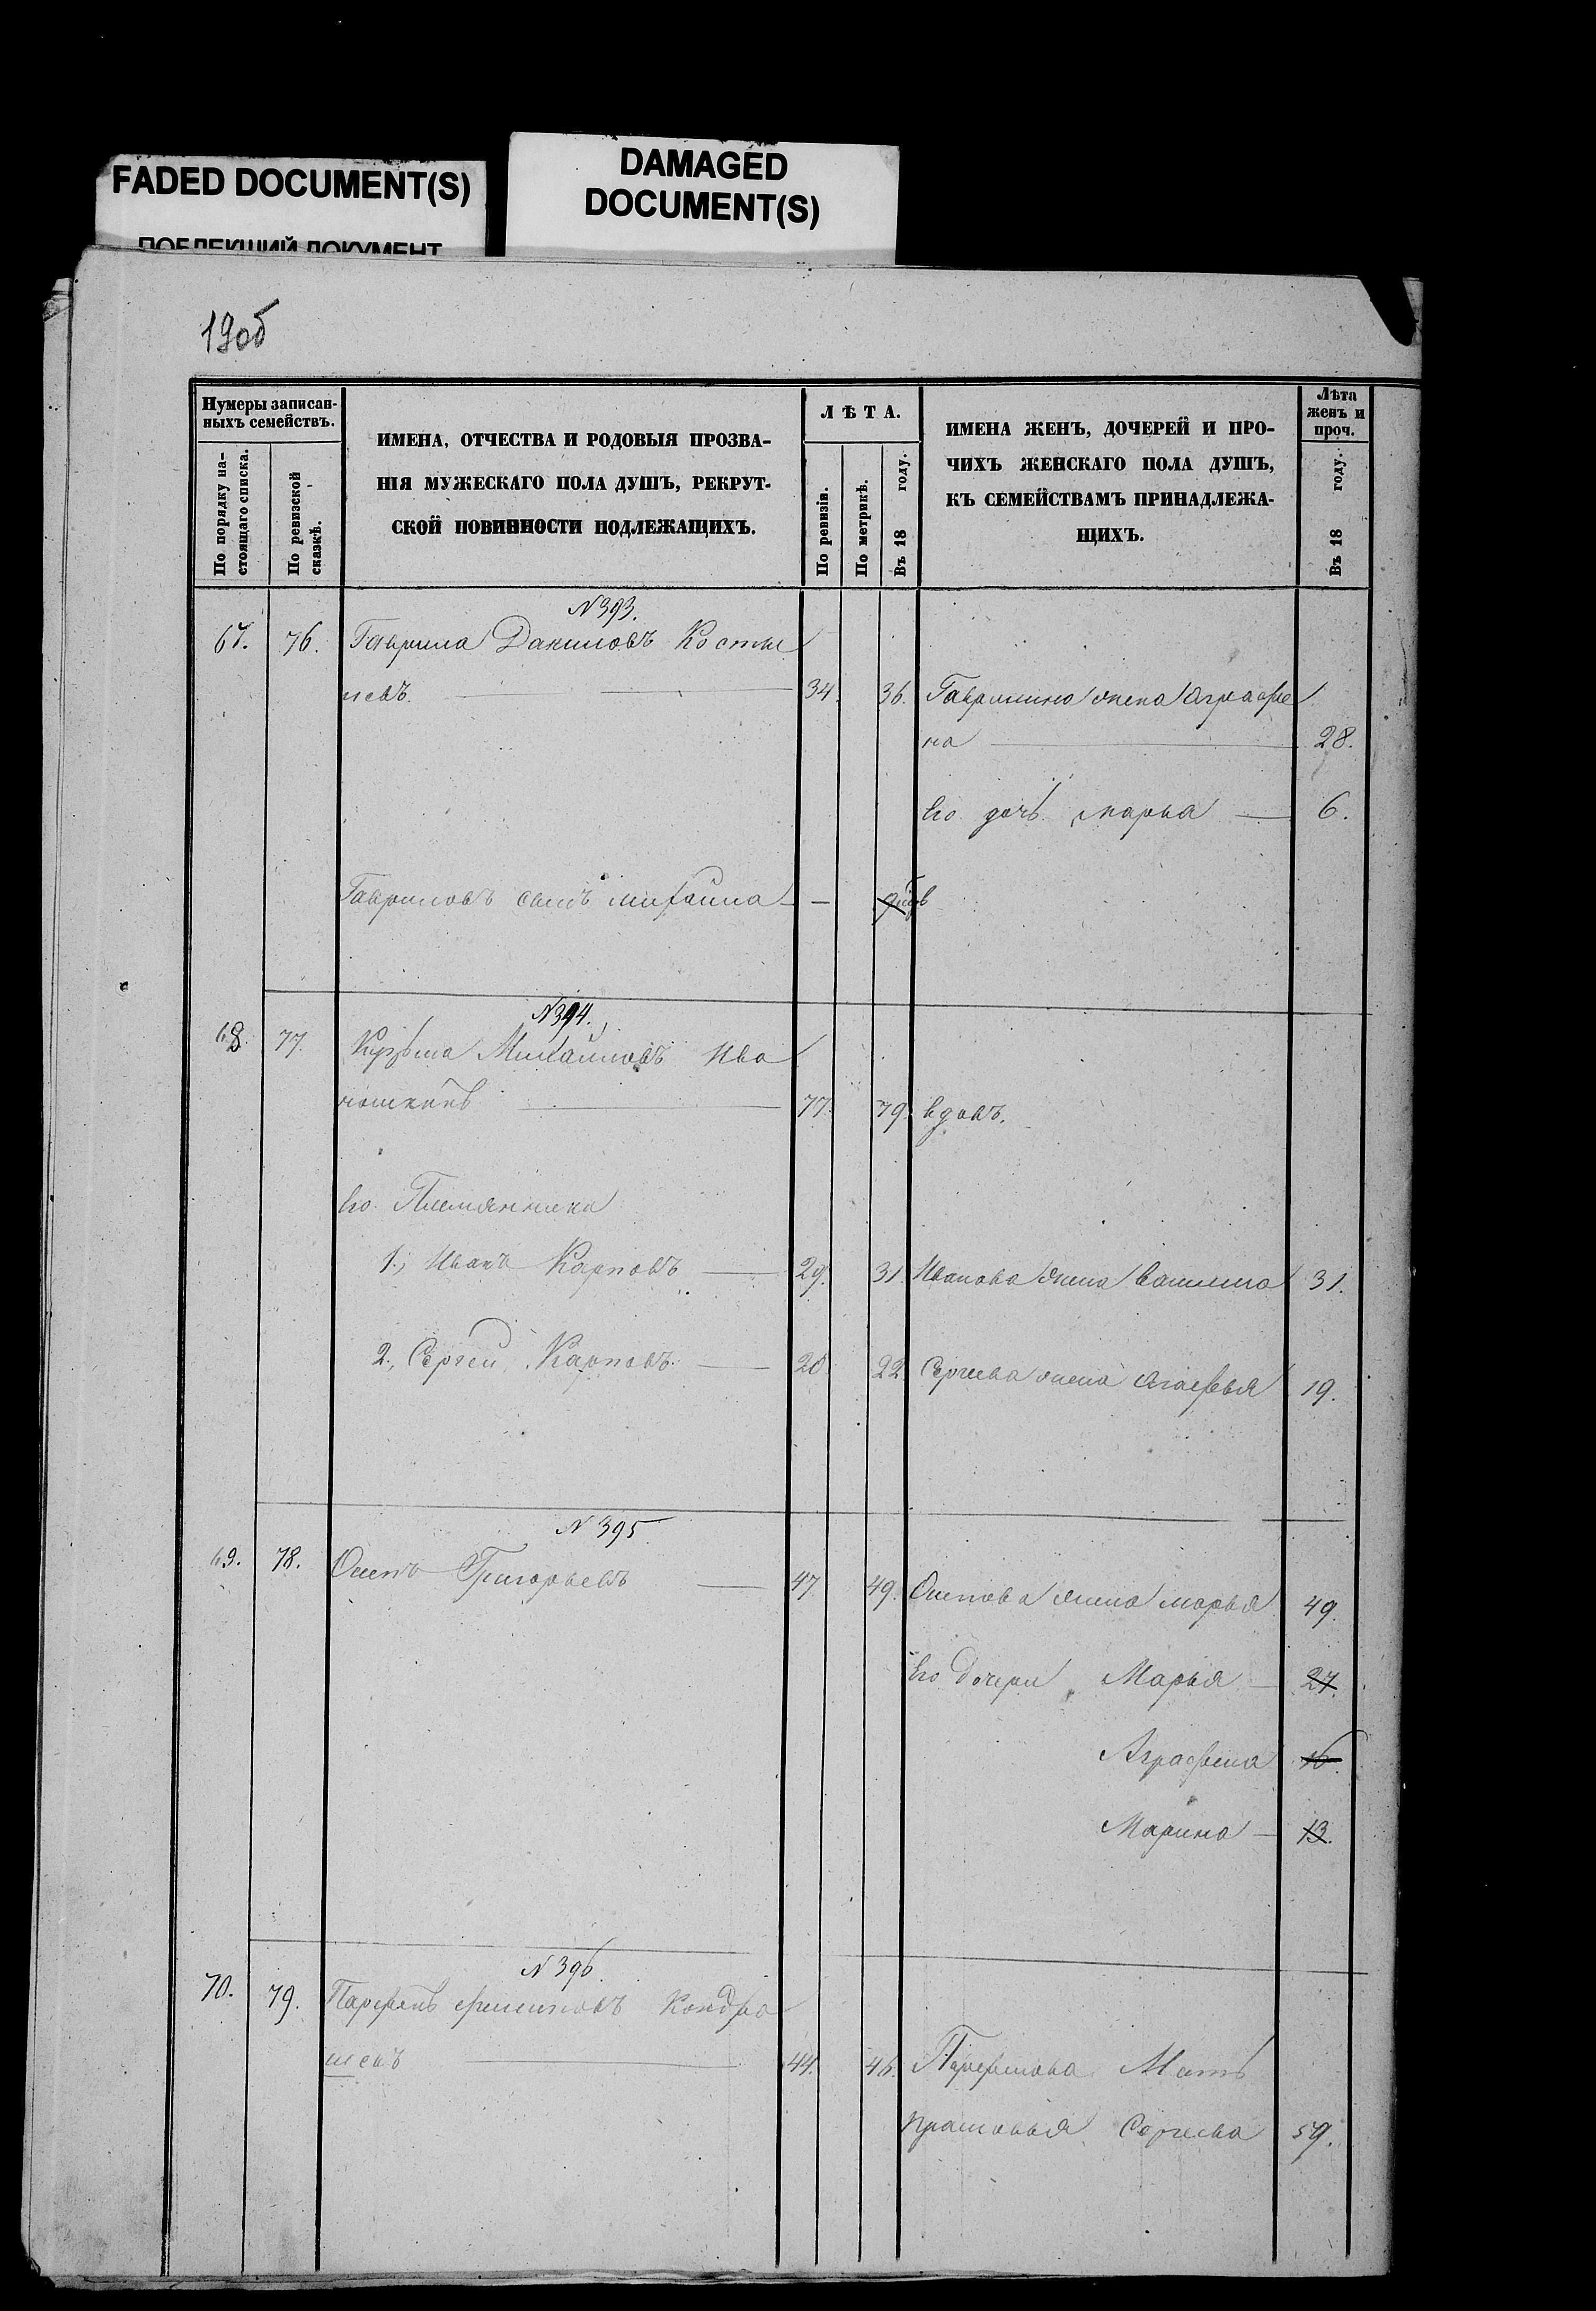 FADED DOCUMENT(S)
ПОБЛЕКШИЙ ДОКУМЕНТ
DAMAGED
DOCUMENT(S)
19об
Нумеры записан-
ныхъ семействъ.
По порядку на-
стоящаго списка.
По ревизской
сказкѣ.
ИМЕНА, ОТЧЕСТВА И РОДОВЫЯ ПРОЗВА-
НІЯ МУЖЕСКАГО ПОЛА ДУШЪ, РЕКРУТ-
СКОЙ ПОВИННОСТИ ПОДЛЕЖАЩИХЪ.
ЛѢТА.
По ревизіи.
По метрикѣ.
Въ 18 году.
ИМЕНА ЖЕНЪ, ДОЧЕРЕЙ И ПРО-
ЧИХЪ ЖЕНСКАГО ПОЛА ДУШЪ,
КЪ СЕМЕЙСТВАМЪ ПРИНАДЛЕЖА-
ЩИХЪ.
Лѣта
женъ и
проч.
Въ 18 году.
N393.
67. 76. Гаврила Даниловъ Косты
левъ 34. 36. Гаврилина жена Аграфе
на 28.
Его дочь Марья 6.
Гавриловъ сынъ Михайла
N394.
68. 77. Кузьма Михайловъ Ива
ношкинъ 77. 79. вдовъ.
Его Племянники
1., Иванъ Карповъ 29. 31. Иванова жена 31.
2., Сергей Карповъ 20 22 Сергеева жена Агафья 19.
N 395
69. 78. Осипъ Григорьевъ 47 49. Осипова жена Марья 49.
Его дочери Марья 27.
Аграфена 16.
Марина 13.
N 396.
70. 79. Парфенъ Филиповъ Кондра
шевъ 44. 46. Парфенова Мать
Прасковья Сергеева 59.